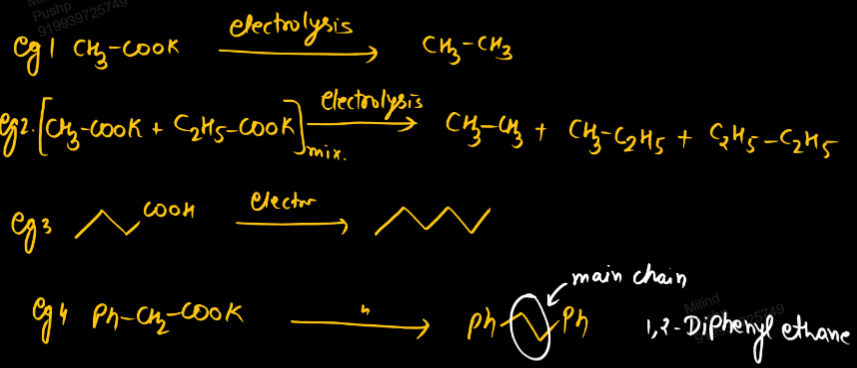 Pushp
919939725749
eg 1 CH3-COOK electrolysis CH3-CH3
eg2. [CH3-COOK + C2H5-COOK]mix. electrolysis CH3-CH3 + CH3-C2H5 + C2H5-C2H5
eg3 COOH electro
main chain
eg4 Ph-CH2-COOK " Ph Ph 1,2-Diphenyl ethane
Milind